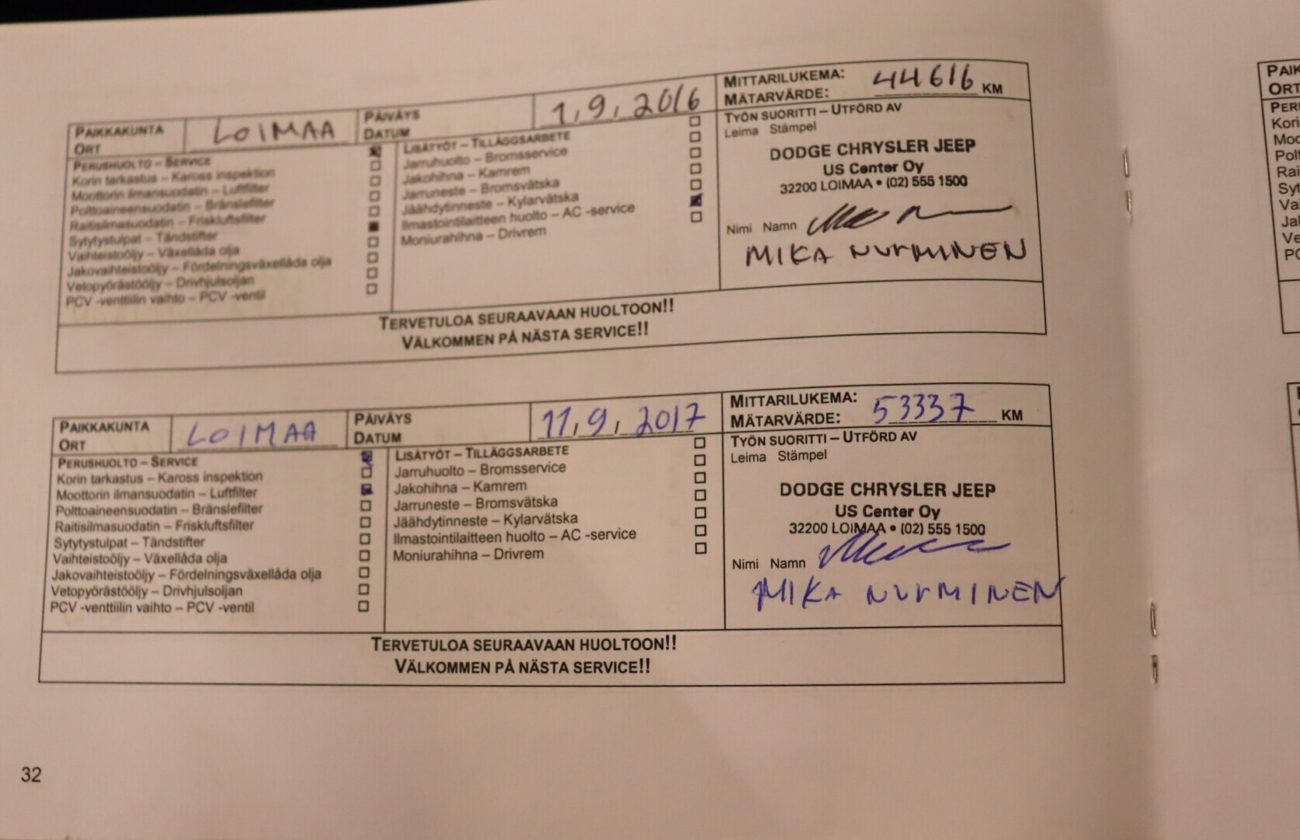 PAIKKAKUNTA
ORT
LOIMAA
PÄIVÄYS
DATUM
1,9,2016
MITTARILUKEMA:
MÄTARVÄRDE: 44616 KM
PERUSHUOLTO – SERVICE
Korin tarkastus – Kaross inspektion
Moottorin ilmansuodatin – Luftfilter
Polttoaineensuodatin – Bränslefilter
Raitisilmasuodatin – Friskluftsfilter
Sytytystulpat – Tändstifter
Vaihteistoöljy – Växellåda olja
Jakovaihteistoöljy – Fördelningsväxellåda olja
Vetopyörästööljy – Drivhjulsoljan
PCV -venttiilin vaihto – PCV -ventil
LISÄTYÖT – TILLÄGGSARBETE
Jarruhuolto – Bromsservice
Jakohihna – Kamrem
Jarruneste – Bromsvätska
Jäähdytinneste – Kylarvätska
Ilmastointilaitteen huolto – AC -service
Moniurahihna – Drivrem
TYÖN SUORITTI – UTFÖRD AV
Leima Stämpel
DODGE CHRYSLER JEEP
US Center Oy
32200 LOIMAA • (02) 555 1500
Nimi Namn
MIKA NURMINEN
TERVETULOA SEURAAVAAN HUOLTOON!!
VÄLKOMMEN PÅ NÄSTA SERVICE!!
PAIKKAKUNTA
ORT
LOIMAA
PÄIVÄYS
DATUM
11,9,2017
MITTARILUKEMA:
MÄTARVÄRDE: 53337 KM
PERUSHUOLTO – SERVICE
Korin tarkastus – Kaross inspektion
Moottorin ilmansuodatin – Luftfilter
Polttoaineensuodatin – Bränslefilter
Raitisilmasuodatin – Friskluftsfilter
Sytytystulpat – Tändstifter
Vaihteistoöljy – Växellåda olja
Jakovaihteistoöljy – Fördelningsväxellåda olja
Vetopyörästööljy – Drivhjulsoljan
PCV -venttiilin vaihto – PCV -ventil
LISÄTYÖT – TILLÄGGSARBETE
Jarruhuolto – Bromsservice
Jakohihna – Kamrem
Jarruneste – Bromsvätska
Jäähdytinneste – Kylarvätska
Ilmastointilaitteen huolto – AC -service
Moniurahihna – Drivrem
TYÖN SUORITTI – UTFÖRD AV
Leima Stämpel
DODGE CHRYSLER JEEP
US Center Oy
32200 LOIMAA • (02) 555 1500
Nimi Namn
MIKA NURMINEN
TERVETULOA SEURAAVAAN HUOLTOON!!
VÄLKOMMEN PÅ NÄSTA SERVICE!!
32